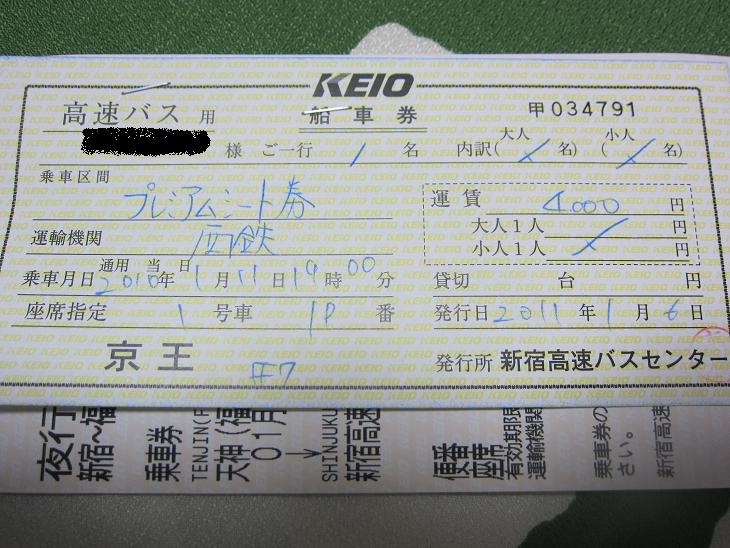 KEIO
高速バス用 船車券 甲034791
様 ご一行 1 名 内訳(大人 名)(小人 名)
乗車区間 プレミアムシート券
運賃 4,000 円
大人1人 円
小人1人 円
運輸機関 西鉄
通用 当日
乗車月日 2010年1月11日19時00分
貸切 台 円
座席指定 1 号車 1P 番
発行日 2011年1月6日
京王
発行所 新宿高速バスセンター
夜行
新宿~福
乗車券
TENJIN(F
天神(福
01月
SHINJUKU
新宿高速
便番
座席
有効期限
運輸機関
乗車券の
さい。
新宿高速